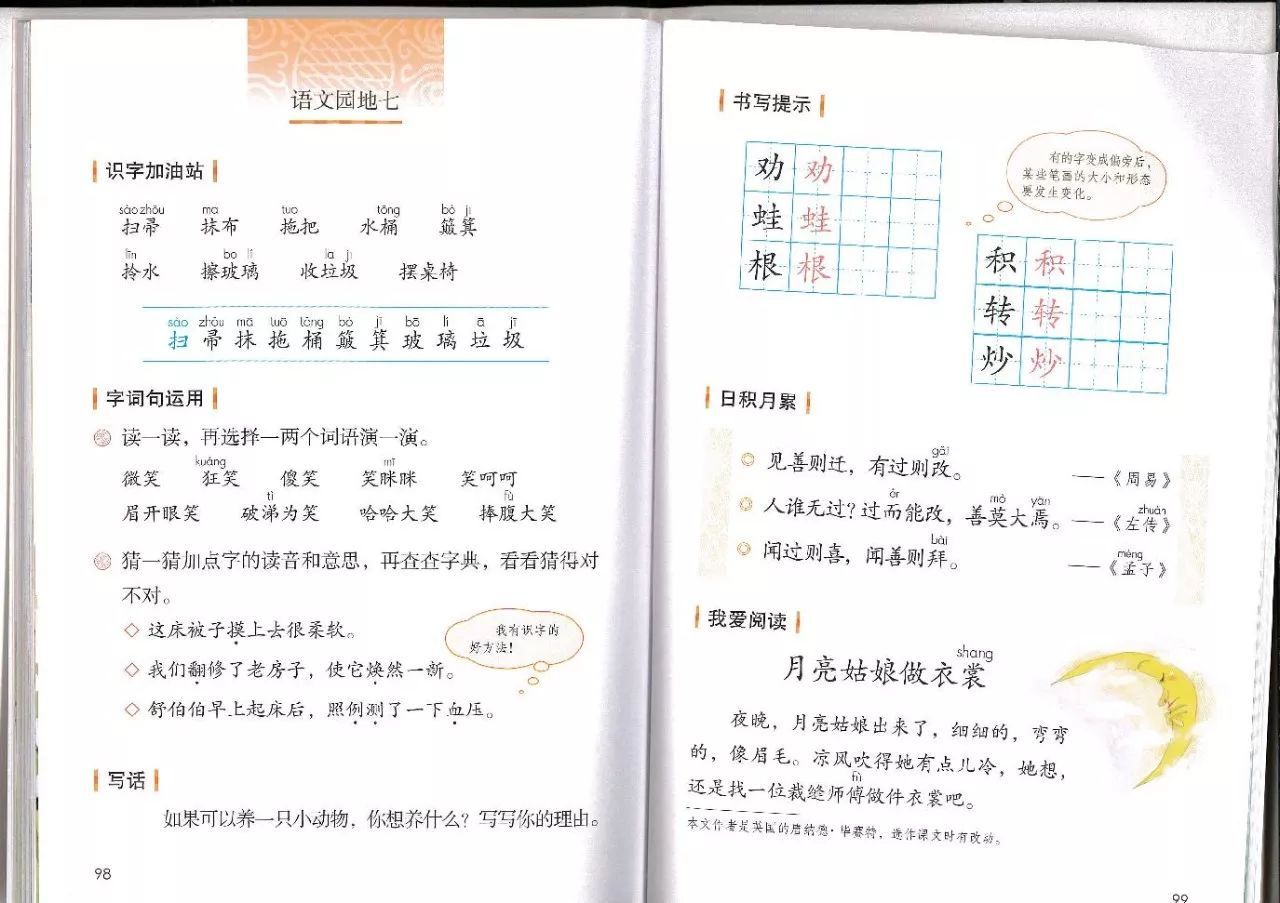 语文园地七
识字加油站
sào zhǒu mā tuō tǒng bò ji
扫帚 抹布 拖把 水桶 簸箕
līn bō li lā jī
拎水 擦玻璃 收垃圾 摆桌椅
sào zhǒu mā tuō tǒng bò jī bō lí lā jī
扫 帚 抹 拖 桶 簸 箕 玻 璃 垃 圾
字词句运用
读一读，再选择一两个词语演一演。
kuáng mī
微笑 狂笑 傻笑 笑眯眯 笑呵呵
tì fù
眉开眼笑 破涕为笑 哈哈大笑 捧腹大笑
猜一猜加点字的读音和意思，再查查字典，看看猜得对
不对。
这床被子摸上去很柔软。
我们翻修了老房子，使它焕然一新。
舒伯伯早上起床后，照例测了一下血压。
我有识字的
好方法！
写话
如果可以养一只小动物，你想养什么？写写你的理由。
98
书写提示
劝 劝
蛙 蛙
根 根
有的字变成偏旁后，
某些笔画的大小和形态
要发生变化。
积 积
转 转
炒 炒
日积月累
gǎi
见善则迁，有过则改。 ——《周易》
ér mò yān zhuàn
人谁无过？过而能改，善莫大焉。 ——《左传》
bài mèng
闻过则喜，闻善则拜。 ——《孟子》
我爱阅读
shang
月亮姑娘做衣裳
夜晚，月亮姑娘出来了，细细的，弯弯
的，像眉毛。凉风吹得她有点儿冷，她想，
fu
还是找一位裁缝师傅做件衣裳吧。
本文作者是英国的唐纳德·毕赛特，选作课文时有改动。
99